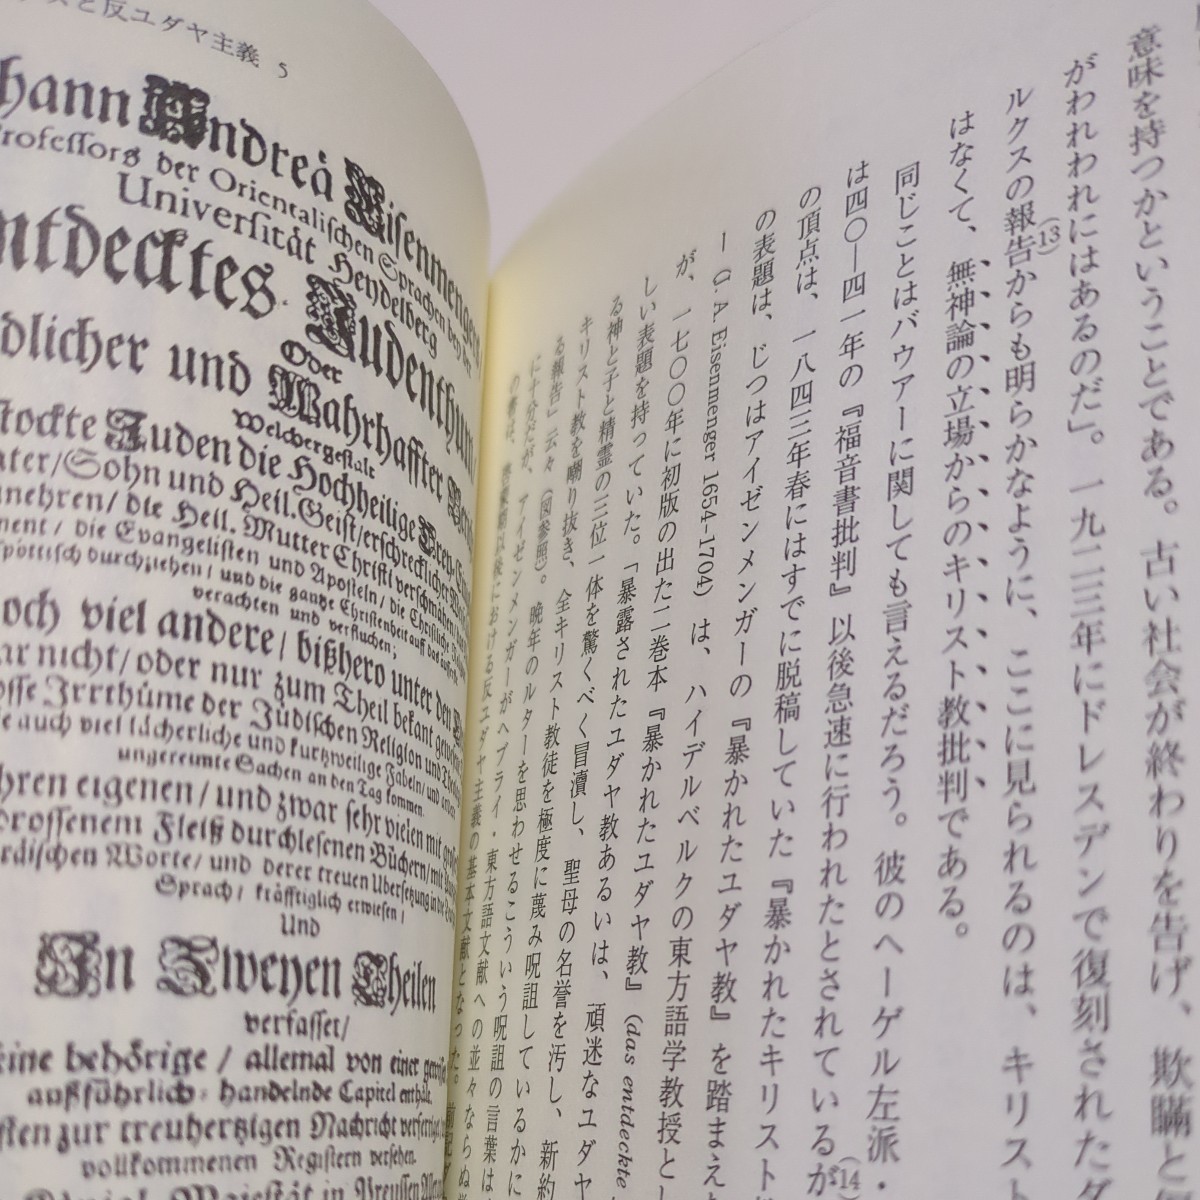 と反ユダヤ主義 5
hann Andreä Eisenmengers
Professors der Orientalischen Sprachen bey der
Universität Heydelberg
ntdecktes Judenthum
Oder
dlicher und Wahrhaffter
Welchergestalt
stockte Juden die Hochheilige
ater/ Sohn und Heil. Geist/ erschrecklicher
unehren/ die Heil. Mutter Christi verschmähen/
ment/ die Evangelisten und Aposteln/ die Christliche
spöttisch durchziehen/ und die gantze Christenheit auff das
verachten und verfluchen;
och viel andere/ bißhero unter den
ar nicht/ oder nur zum Theil bekant
osse Irrthüme der Jüdischen Religion und
e auch viel lächerliche und kurtzweilige Fabeln/ und
ungereimte Sachen an den Tag kommen.
hren eigenen/ und zwar sehr vielen mit
drossenem Fleiß durchlesenen Büchern/ mit
räischen Worte/ und derer treuen Ubersetzung in die
Sprach/ kräfftiglich erwiesen/
Und
In Zweyen Theilen
verfasset/
eine behörige/ allemal von einer
außführlich-handelnde Capitel enthält.
ften zur treuhertzigen Nachricht verfertiget
vollkommenen Registern versehen.
Majestät in Preussen
意味を持つかということである。古い社会が終わりを告げ、欺瞞と
がわれわれにはあるのだ」。一九二三年にドレスデンで復刻された
ルクスの報告(13)からも明らかなように、ここに見られるのは、キリスト
はなくて、無神論の立場からのキリスト教批判である。
同じことはバウアーに関しても言えるだろう。彼のヘーゲル左派・
は四〇—四一年の『福音書批判』以後急速に行われたとされているが(14)
の頂点は、一八四三年春にはすでに脱稿していた『暴かれたキリスト
の表題は、じつはアイゼンメンガーの『暴かれたユダヤ教』を踏まえ
— G. A. Eisenmenger 1654-1704) は、ハイデルベルクの東方語学教授と
が、一七〇〇年に初版の出た二巻本『暴かれたユダヤ教』(das entdeckte
しい表題を持っていた。「暴露されたユダヤ教あるいは、頑迷なユダヤ
る神と子と精霊の三位一体を驚くべく冒瀆し、聖母の名誉を汚し、新約
キリスト教を嘲り抜き、全キリスト教徒を極度に蔑み呪詛しているかに
る報告」云々(図参照)。晩年のルターを思わせるこういう呪詛の言葉は
に十分だが、アイゼンメンガーがヘブライ・東方語文献への並々ならぬ
の書は、啓蒙期以後における反ユダヤ主義の基本文献となった。前記